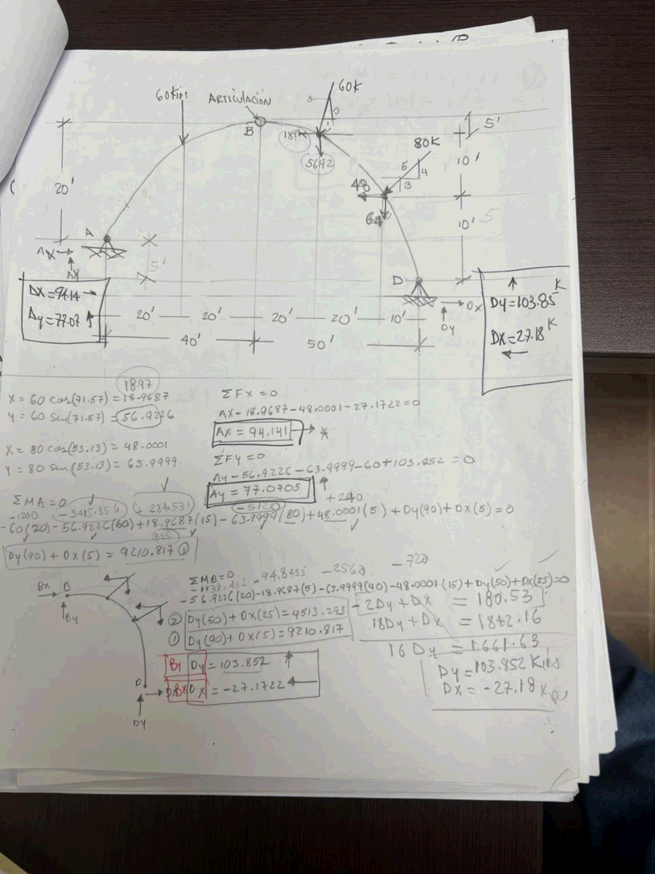 60Kips
ARTICULACIÓN
60K
B
5'
5692
80K
10'
5
4
3
20'
48
64
10'
A
Ax →
Ay
5'
D
Dx
Dy
Dx = 94.14 →
Ay = 77.07 ↑
20' 20' 20' 20' 10'
40' 50'
↑
Dy = 103.85 K
Dx = 27.18 K
←
1897
X = 60 cos(71.57) = 18.9687
Y = 60 sen(71.57) = 56.9226
X = 80 cos(53.13) = 48.0001
Y = 80 sen(53.13) = 63.9999
ΣFx = 0
Ax - 18.9687 - 48.0001 - 27.1722 = 0
Ax = 94.141 →
ΣFy = 0
Ay - 56.9226 - 63.9999 - 60 + 103.852 = 0
Ay = 77.0705 ↑
ΣMA = 0
-1200 -3415.356 + 284.531 -5120 +240
-60(20) - 56.9226(60) + 18.9687(15) - 63.9999(80) + 48.0001(5) + Dy(90) + Dx(5) = 0
Dy(90) + Dx(5) = 9210.817 ①
Bx → B
By
D
Dx
Dy
ΣMB = 0
-1138.452 -94.8435 -2560 -720
-56.9226(20) - 18.9687(5) - 63.9999(40) - 48.0001(15) + Dy(50) + Dx(25) = 0
② Dy(50) + Dx(25) = 4513.293
① Dy(90) + Dx(5) = 9210.817
By Dy = 103.852 ↑
Bx Dx = -27.1722 ←
2Dy + Dx = 180.53
18Dy + Dx = 1842.16
16 Dy = 1661.63
Dy = 103.852 Kips
Dx = -27.18 Kips